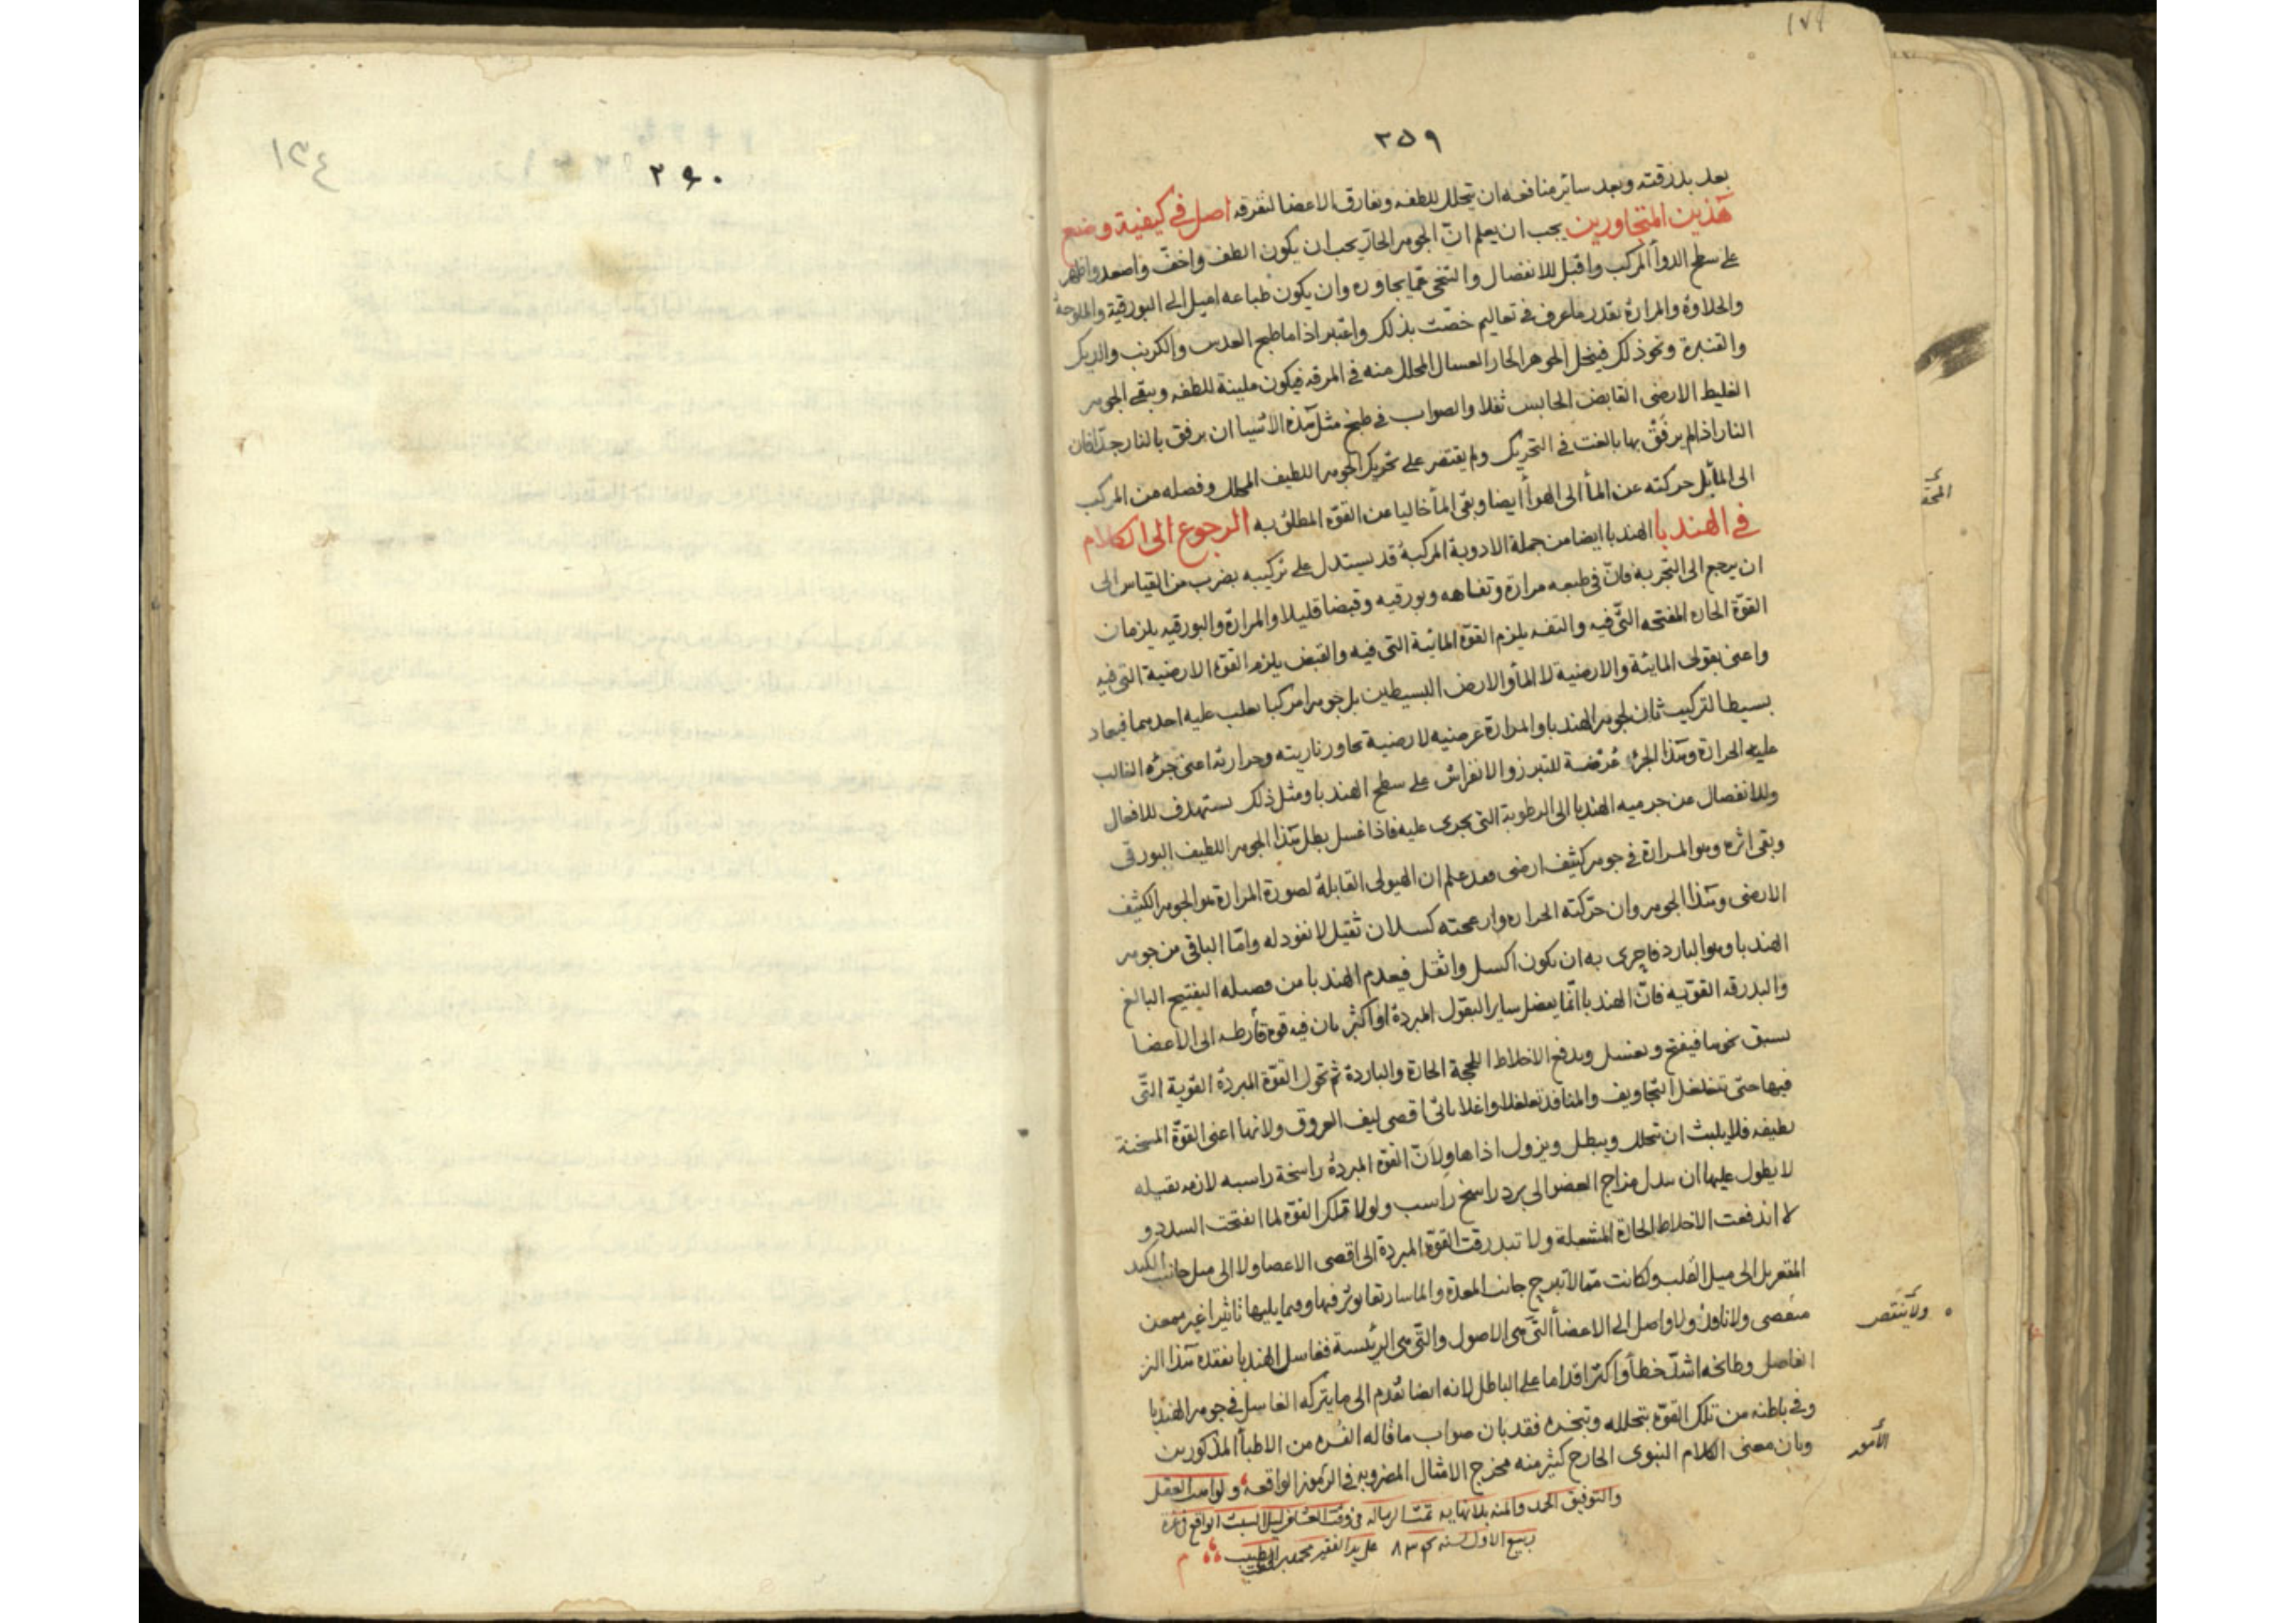 ١٧٤
٣٥٩
بعد بذرقته وبعد سائر منافعه ان يتحلل للطفه ويفارق الاعضا لتفرقه اصل في كيفية وضع
هذين المتجاورين يجب ان يعلم انّ الجوهر الحارّ يجب ان يكون الطف واخفّ واصعد واظهر
على سطح الدوأ المركب واقبل للانفصال والتنحى عمّا يجاوره وان يكون طباعه اميل الى البورقية والملوحة
والحلاوة والمرارة بقدر ما عرف في تعاليم خصّت بذلك واعتبر اذا ما طبخ العدس والكرنب والديك
والقنبرة ونحو ذلك فينحل الجوهر الحار العسال المحلل منه في المرقه فيكون ملينة للطفه ويبقى الجوهر
الغليظ الارضى القابض الحابس ثفلا والصواب في طبخ مثل هذه الاشيا ان يرفق بالنار جدّا فان
النار اذا لم يرفق بها بالغت في التحريك ولم يقتصر على تحريك الجوهر اللطيف المحلل وفصله من المركب
الى المأ بل حركته عن المأ الى الهوأ ايضا وبقى المأ خاليا عن القوة المطلوب به الرجوع الى الكلام
في الهندبا الهندبا ايضا من جملة الادوية المركبة قد يستدل على تركيبه بضرب من القياس الى
ان يرجع الى التجربه فانّ في طبعه مرارة وتفاهه وبورقيه وقبضا قليلا والمرارة والبورقيه يلزمان
القوّة الحاره المفتحه التّى فيه والتفه يلزم القوة المائية التى فيه والقبض يلزم القوة الارضية التى فيه
واعنى بقولى المائية والارضية لا المأ والارض البسيطين بل جوهرا مركبا يغلب عليه احدهما فيعاد
بسيطا لتركيب ثان لجوهر الهندبا والمرارة عرضيه لارضية تجاور ناريته وحرارية اعنى جزه الغالب
عليه الحرارة وهذا الجزء عرضة للتبرز والانفراش على سطح الهندبا ومثل ذلك يستهدف للافعال
وللانفصال عن جرميه الهندبا الى الرطوبة التى يجرى عليه فاذا غسل بطل هذا الجوهر اللطيف البورقى
وبقى اثره وهو المرارة في جوهر كثيف ارضى فقد علم ان الهيولى القابلة لصورة المرارة هو الجوهر الكثيف
الارضى وهذا الجوهر وان حرّكته الحراره وازعجته كسلان ثقيل لا نفود له وامّا الباقى من جوهر
الهندبا وهو البارد فاحرى به ان يكون اكسل واثقل فيعدم الهندبا من فصيله التفتيح البالغ
والبدرقه القوّيه فانّ الهندبا انّما يفضل ساير البقول المبردة او اكثر بان فيه قوة فأرطه الى الاعضا
يسبق نحوها فيفتح ويغسل ويدفع الاخلاط اللحجة الحارة والباردة ثم تحول القوة المبردة القوية التّى
فيها حتى تتغلغل التجاويف والمنافذ تغلغلا واغلا ياتى اقصى ليف العروق ولانها اعنى القوّة المسخنة
لطيفه فلا يلبث ان تتحلل ويبطل ويزول اذاها ولانّ القوة المبردة راسخة راسبه لازمه بقيله
لا يطول عليها ان يبدل مزاج العضو الى برد راسخ راسب ولولا تلك القوّة لما انفتحت السدد و
لا اندفعت الاخلاط الحارة المشعلة ولا تبدرقت القوّة المبردة الى اقصى الاعضا ولا الى ميل جانب الكبد
المقعر بل الى ميل القلب ولكانت ممّا لا تبرح جانب المعدة والماسارتقا يوثر فيها وفيما يليها تاثيرا غير ممعن
متقصى ولا نافذ ولا واصل الى الاعضأ التّى هى الاصول والتّى هى الرئيسة فغاسل الهندبا يفقده هذا الز
الفاصل وطابخه اشدّ خطأ واكثر اقداما على الباطل لانه ايضا تقدم الى ما يتركه الغاسل في جوهر الهندبا
وفى باطنه من تلك القوّة بتحلله وتبخره فقد بان صواب ما قاله النفره من الاطبأ المذكورين
وبان معنى الكلام النبوى الخارج كثير منه مخرج الامثال المضروبه في الرموز الواقعة ولواهب العقل
والتوفيق الحمد والمنه بلا نهايه تمت الرساله فى وقت العشا فى ليل السبت الواقع غرة
ربيع الاول لسنه على يد الفقير محمد الطبيب
ولا يقتصر
الأمور
٢٦٠
١٣٤